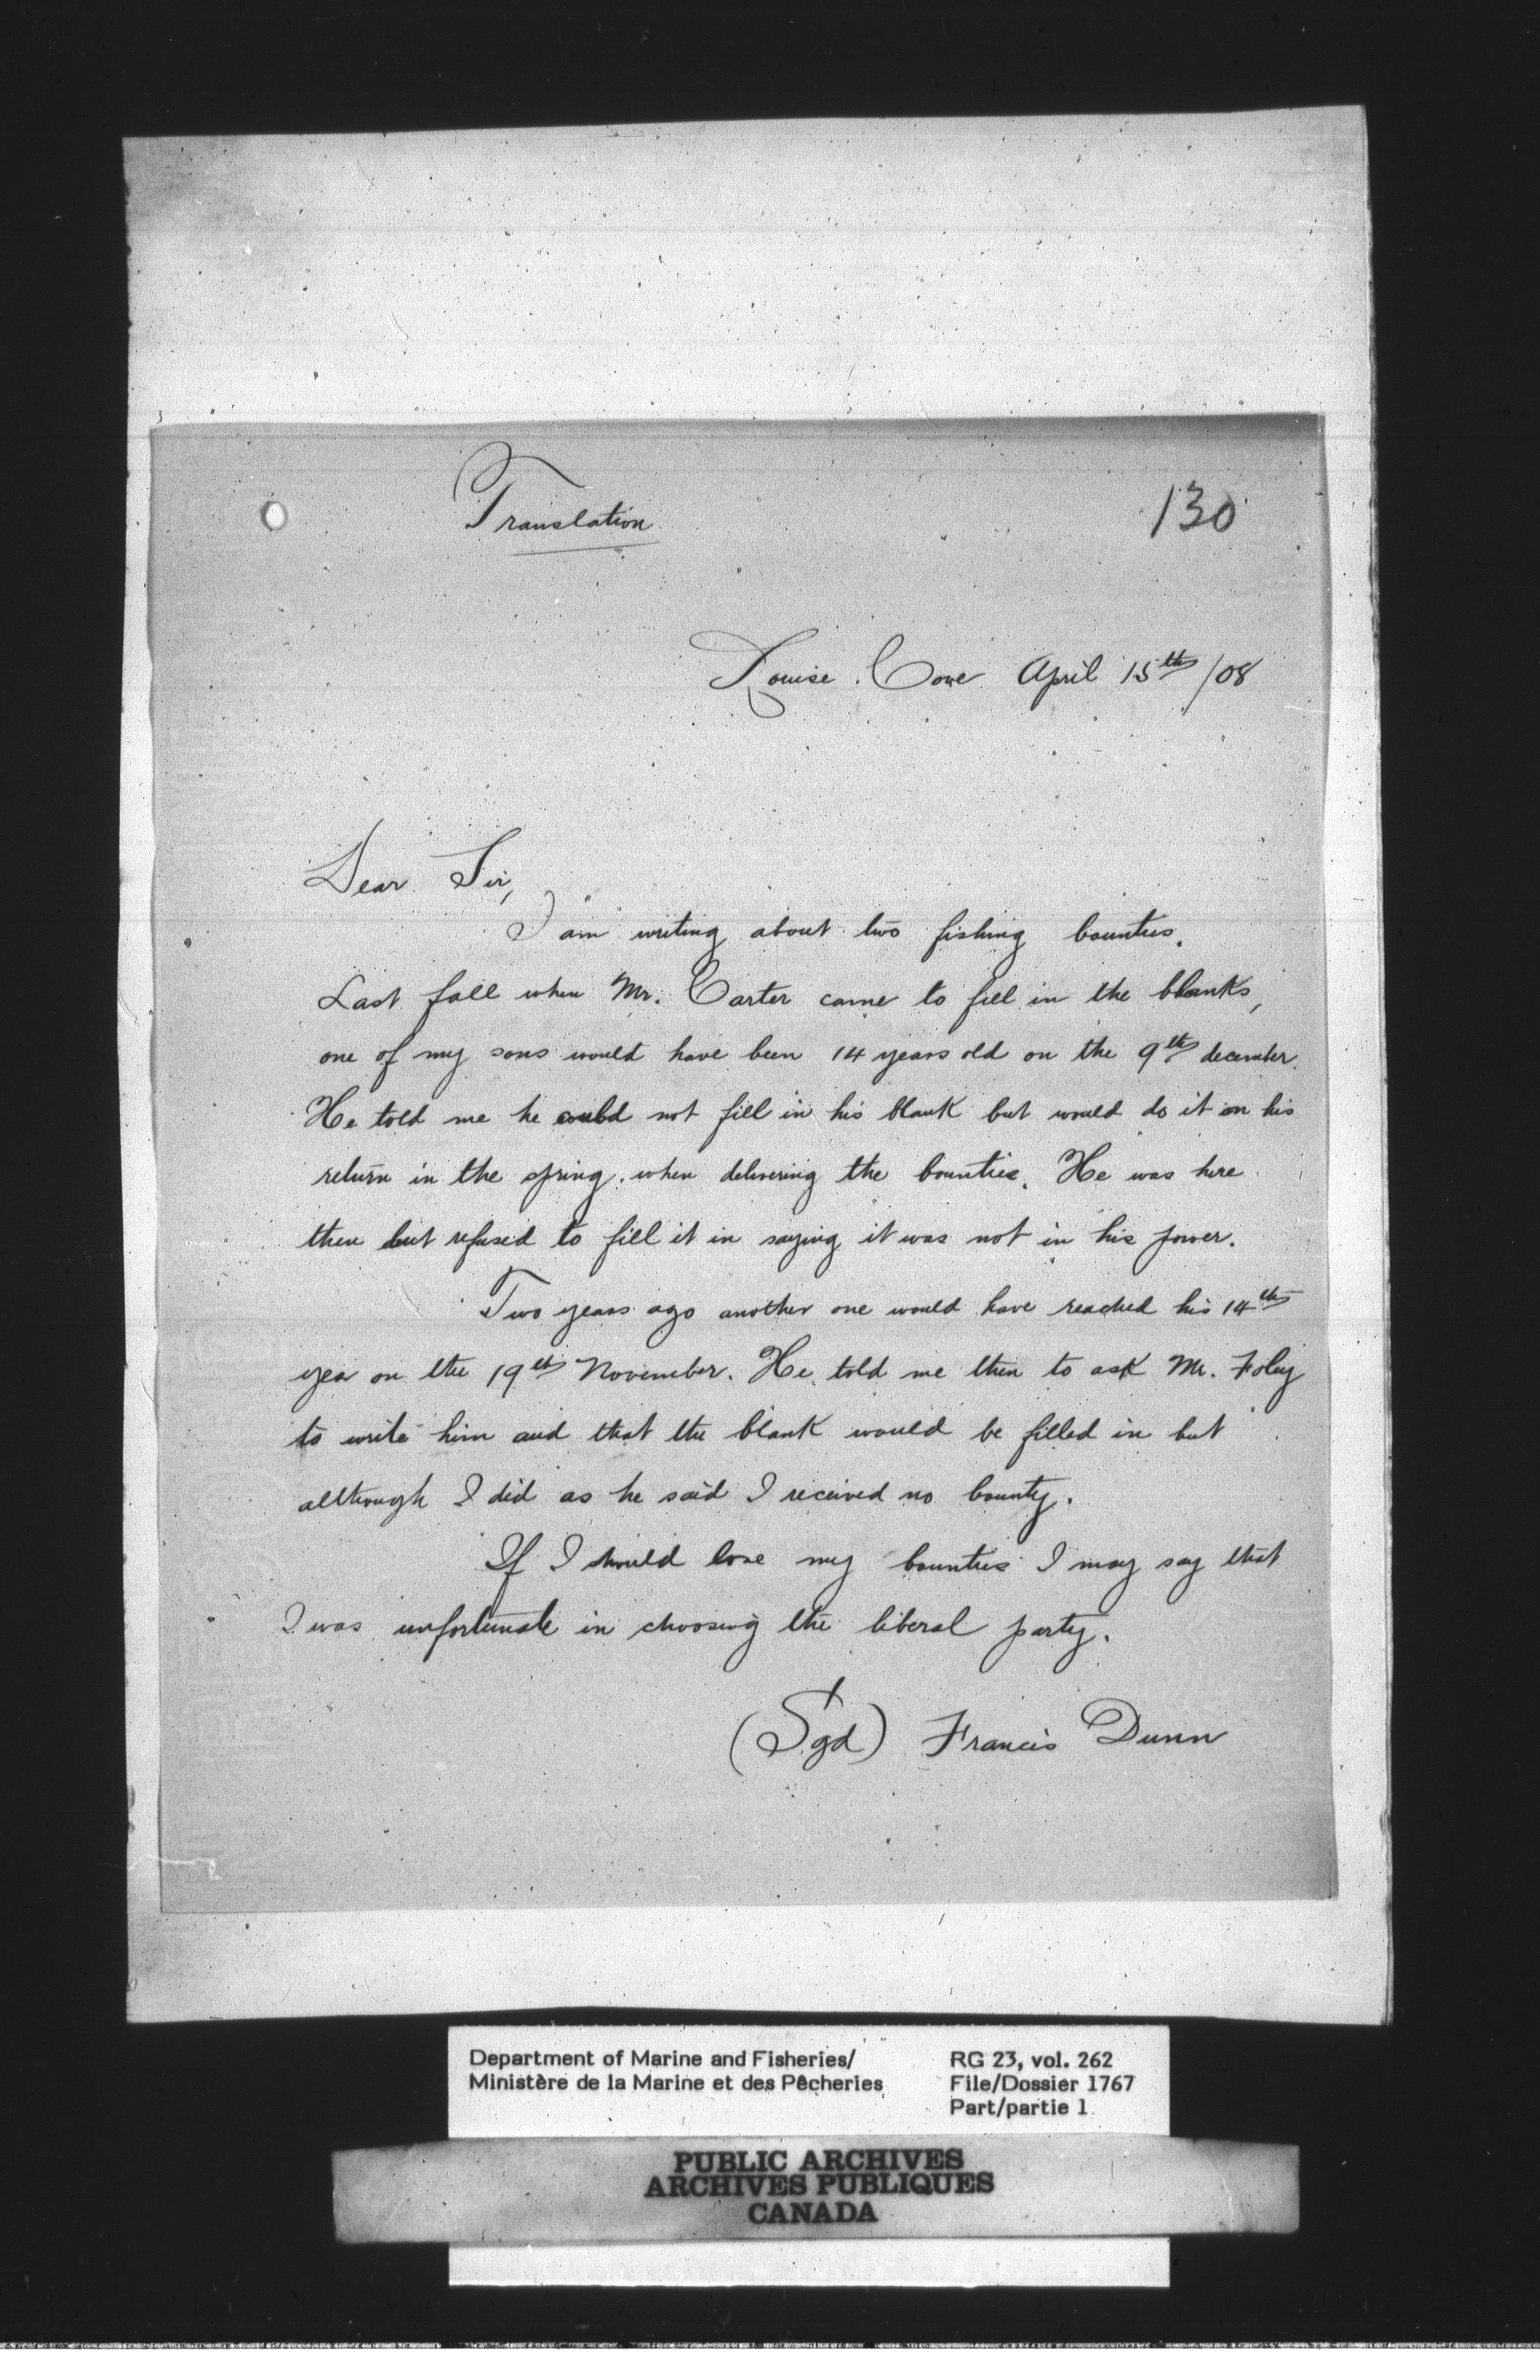 Translation
130
Louise Cove April 15th /08
Dear Sir,
I am writing about two fishing bounties.
Last fall when Mr. Carter came to fill in the blanks,
one of my sons would have been 14 years old on the 9th december.
He told me he could not fill in his blank but would do it on his
return in the spring when delivering the bounties. He was here
then but refused to fill it in saying it was not in his power.
Two years ago another one would have reached his 14th
year on the 19th November. He told me then to ask Mr. Foley
to write him and that the blank would be filled in but
although I did as he said I received no bounty.
If I should lose my bounties I may say that
I was unfortunate in choosing the liberal party.
(Sgd) Francis Dunn
Department of Marine and Fisheries/
Ministère de la Marine et des Pêcheries
RG 23, vol. 262
File/Dossier 1767
Part/partie 1
PUBLIC ARCHIVES
ARCHIVES PUBLIQUES
CANADA